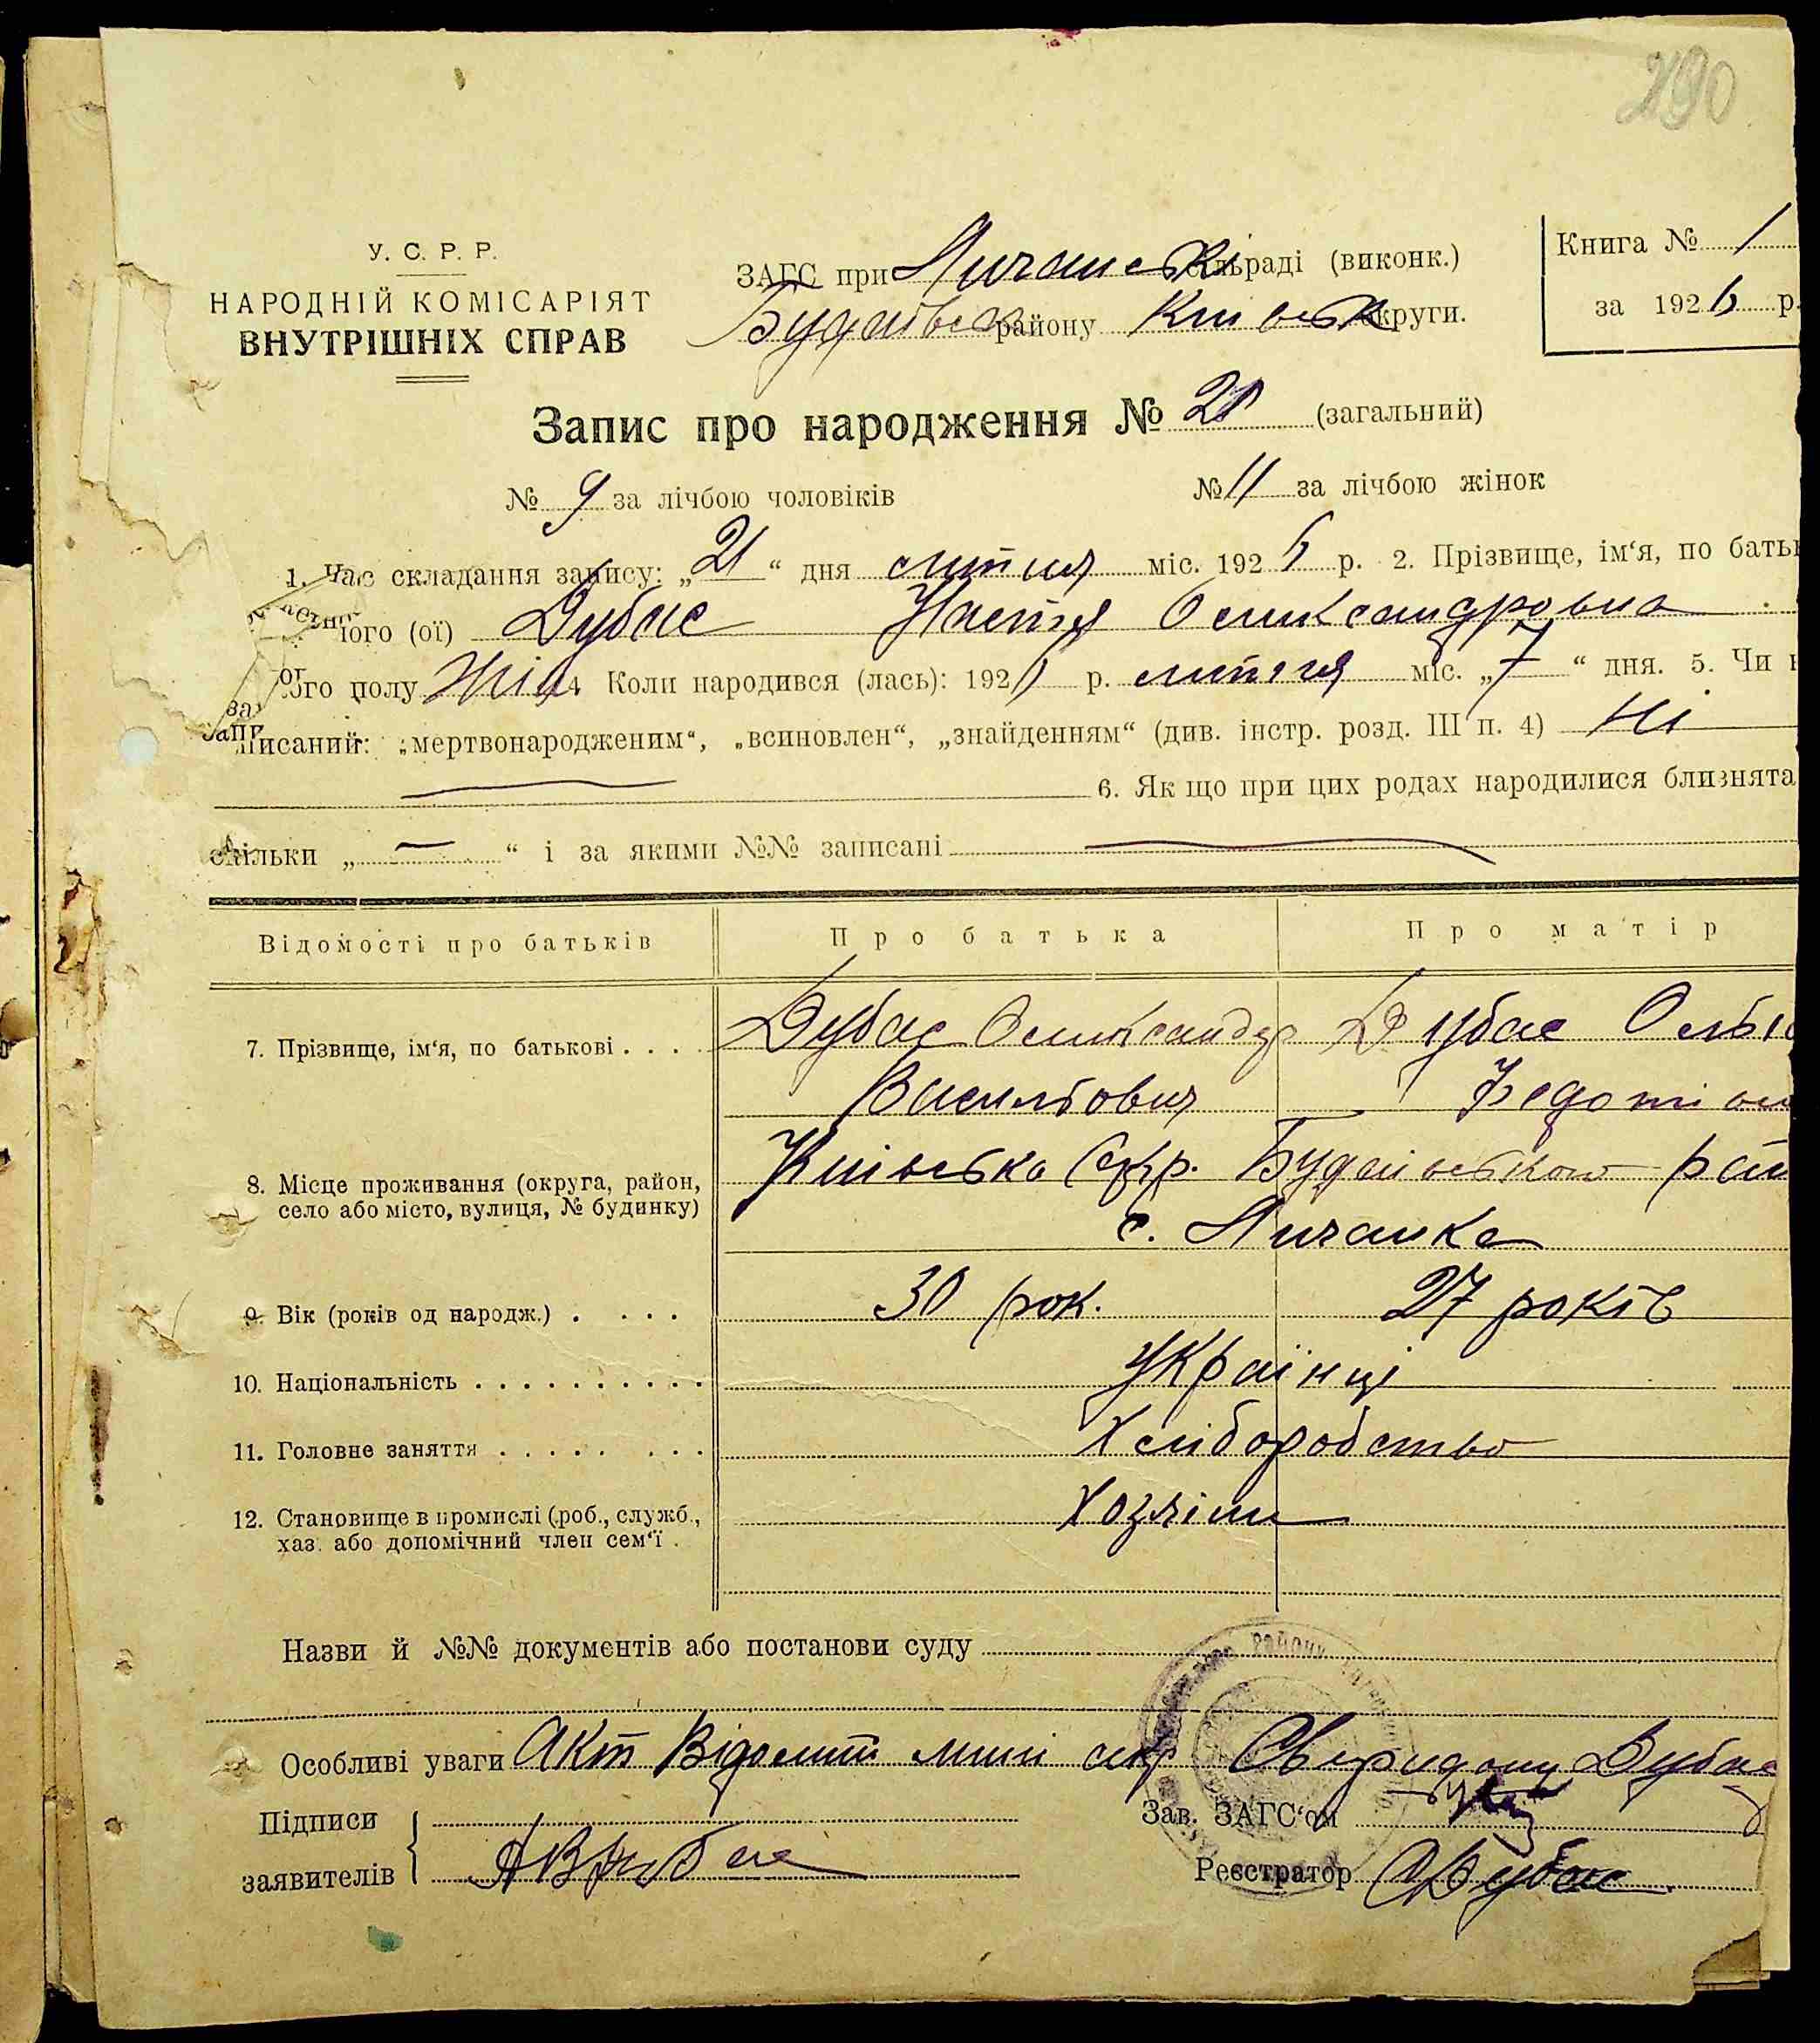 290
У. С. Р. Р.
НАРОДНІЙ КОМІСАРІЯТ
ВНУТРІШНІХ СПРАВ
ЗАГС при Личанській сільраді (виконк.)
Будаївськ району Київськ округи.
Книга № 1
за 1926 р.
Запис про народження № 20 (загальний)
№ 9 за лічбою чоловіків № 11 за лічбою жінок
1. Час складання запису: „21“ дня лютня міс. 1926 р. 2. Прізвище, ім‘я, по батьк
ного (ої) Дубас Настя Олександровна
ого полу Жін. 4. Коли народився (лась): 192 р. лютня міс. „7“ дня. 5. Чи н
писаний: „мертвонародженим“, „всиновлен“, „знайденням“ (див. інстр. розд. III п. 4) Ні
6. Як що при цих родах народилися близнята
скільки „—“ і за якими №№ записані
Відомості про батьків Про батька Про матір
7. Прізвище, ім‘я, по батькові . . . . Дубас Олександр Дубас Ольга
Васильович Федотівн
8. Місце проживання (округа, район, Київська Окр. Будаївського рай
село або місто, вулиця, № будинку) с. Личанка
9. Вік (років од народж.) . . . . 30 рок. 27 років
10. Національність . . . . . . . . . . Українці
11. Головне заняття . . . . . . . . Хліборобство
12. Становище в промислі (роб., служб., Хозяіни
хаз. або допомічний член сем‘ї .
Назви й №№ документів або постанови суду
району
Особливі уваги Акт Свиридону Дубас
Підписи
заявителів
Зав. ЗАГС‘ом
Реєстратор Дубас